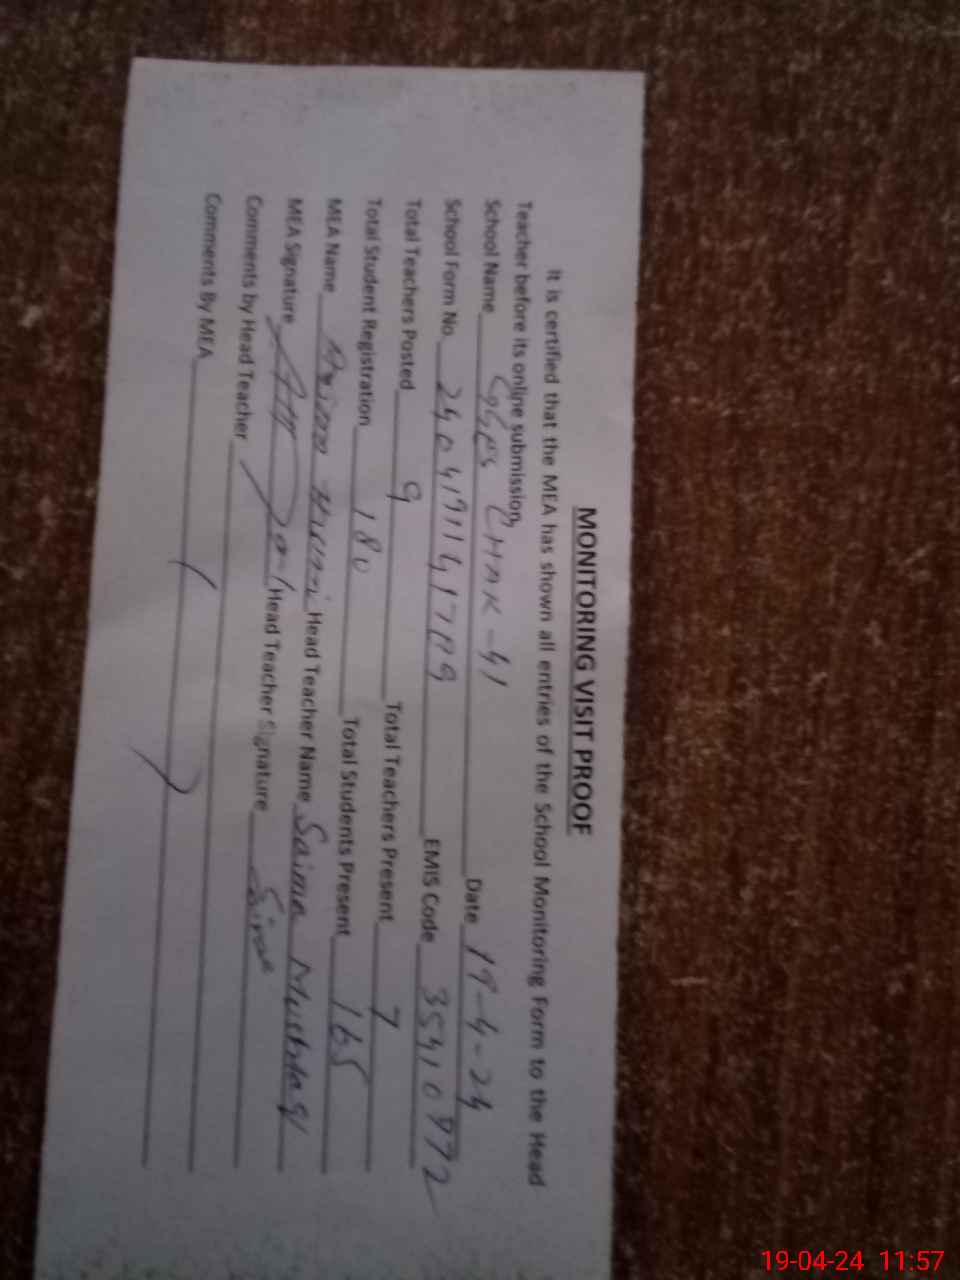 MONITORING VISIT PROOF
It is certified that the MEA has shown all entries of the School Monitoring Form to the Head
Teacher before its online submission.
School Name CHAK-41 Date 19-4-24
School Form No EMIS Code
Total Teachers Posted 9 Total Teachers Present 7
Total Student Registration 180 Total Students Present 165
MEA Name Head Teacher Name Saima Mushtaq
MEA Signature Head Teacher Signature
Comments by Head Teacher
Comments By MEA
19-04-24 11:57